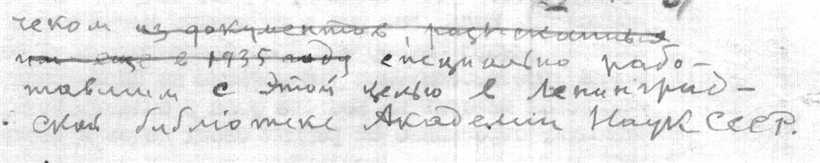 чеком из документов, разысканных
им еще в 1935 году специально рабо-
тавшим с этой целью в Ленинград-
ской библіотеке Академии Наук СССР.